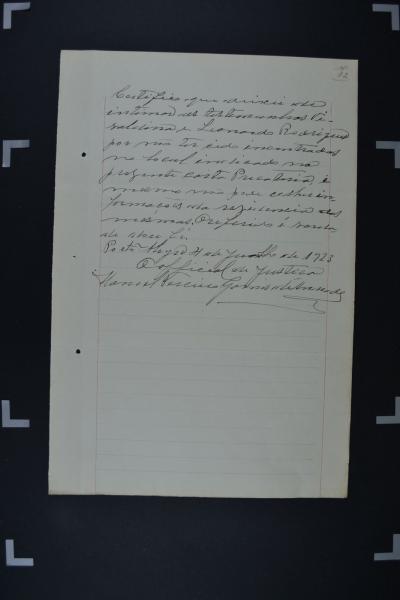 12
Certifico que deixei de
intimar as testemunhas Ri-
valdina e Leonardo Rodrigues
por não ter sido encontrados
no local indicado na
presente carta Precatoria, e
mesmo não pude obter in-
formações da rezidencia das
mesmas. O referido é verda-
de dou fé.
Porto 4 de de 1923
O official de Justiça
Manoel Pereira Gomes